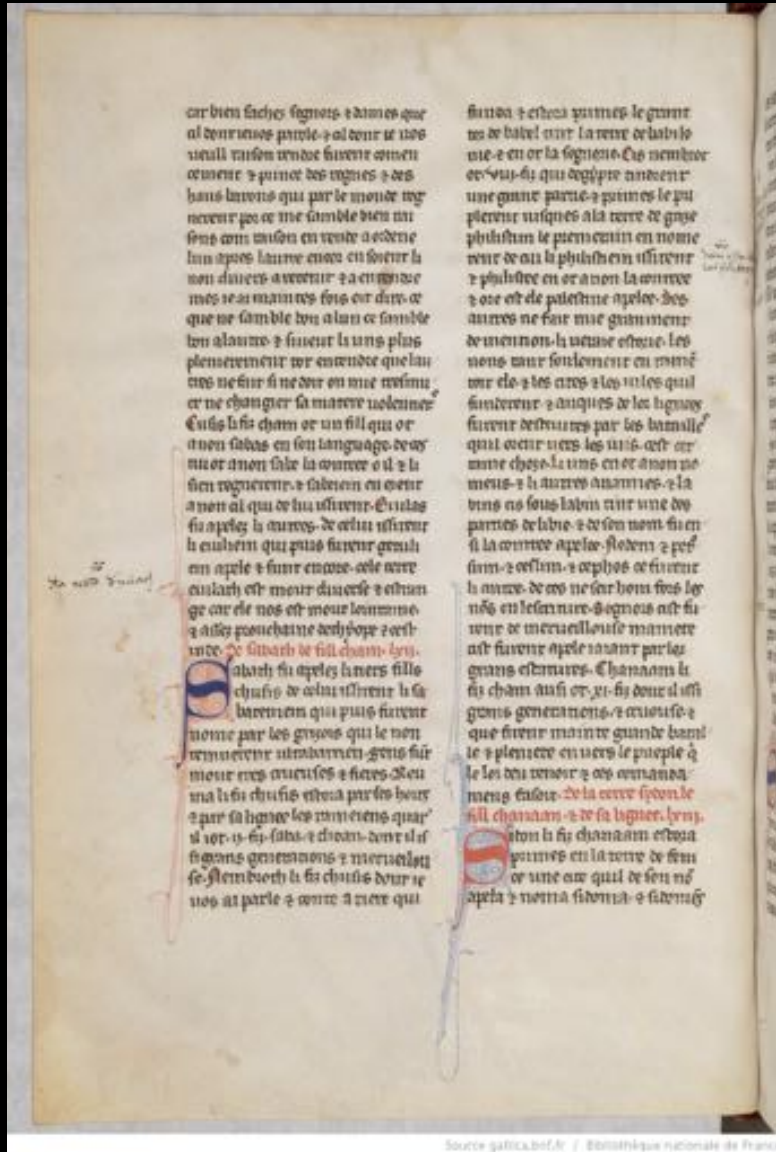 car bien sachez segnors & dames que
cil dont ie uos parole & cil dont ie uos
ueull raison rendre furent comen
cement & prince des regnes & des
haus barons qui par le monde reg
nerent por ce me samble bien rai
sons com raison en rende a ordene
lun apres lautre encor en soient li
non diuers a retenir & a entendre
mes ie ai maintes fois oit dire ce
que ne samble bon a lun ce samble
bon a lautre & siuent li uns plus
plenierement tot entendre que lau
tres ne fait si ne doit on mie
er ne changier sa matere uolentiers
Cusis li fiz cham ot un fill qui ot
a non sabas en son language de
ot a non sabe la contree o il & li
sien regnerent & sabeien en orent
a non cil qui de lui issirent. Euilas
fu apelez li autres. de celui issirent
li euilein qui puis furent getuli
en apele & sunt encore. cele terre
euilath est mout diuerse & estran
ge car ele nos est mout lointaine
& assez prouchaine dethyope & dest
inde. De sabath le fill cham. lxii.
Sabath fu apelez li tiers fills
chusis de celui issirent li sa
bateniein qui puis furent
nome par les grizois qui le non
remuerent gens sunt
mout tres crueuses & fieres. Reu
ma li fiz chusis estora par ses hoirs
& par sa lignee les quar
il iot .ij. fiz. saba. & dadan. dont il is
si grans generations & merueillou
se. Nembroth li fiz chusis dont ie
uos ai parle & conte ariere qui
funda & estora primes le grant
tor de babel tint la terre de babilo
nie & en ot la segnorie. Cis nembroz
ot .viij. fiz qui degypte tindrent
une grant partie & primes le pu
plerent iusques a la terre de gaze
philistim le premerain en nome
rent de cui li philistiein issirent
& philistee en ot a non la contree
& ore est ele palestine apelee. Des
autres ne fait mie graument
de mention li uieille estorie. les
nons tant soulement en
& les cites & les uiles quil
funderent & auques de lor lignages
furent destruites par les batailles
quil orent uers les uns. cest cer
taine chose. li uns en ot a non
& li autres anamies. & la
bins cis sous labim tint une des
parties de libie. & de son nom fu en
si la contree apelee. Nedem & pet
sim. & ceslim. & cephos ce furent
li autre. de ces ne seit hom fors les
nons en lescriture. Segnors cist fu
rent de merueillouse maniere
cist furent apele par les
grans estatures. Chanaam li
fiz cham ausi ot .xi. fiz dont il issi
grans generations & crueuse &
que furent mainte grande batail
le & pleniere enuers le pueple q
le loi deu tenoit & ces comanda
mens faisoit. De la terre sydon le
fill chanaan & de sa lignee. lxiij.
Siton li fiz chanaam estora
primes en la terre de feni
ce une cite quil de son no
apela & noma sidonia & sidoniens
Source gallica.bnf.fr / Bibliothèque nationale de France